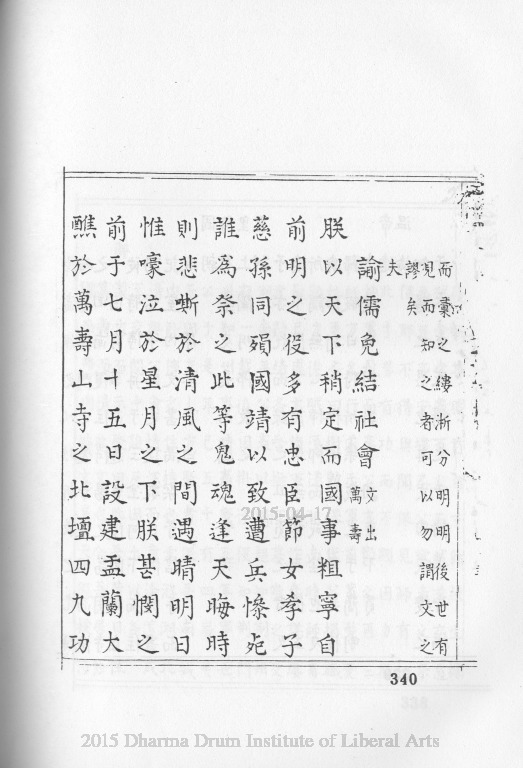 而彙之縷淅分明明後世有
見而知之者可以勿謂文之
謬矣
夫
諭儒免結社會文出萬壽
朕以天下稍定而國事粗寧自
前明之役多有忠臣節女孝子
慈孫同殞國靖以致遭兵慘死
誰為祭之此等鬼魂逢天晦時
則悲嘶於清風之間遇晴明日
惟嚎泣於星月之下朕甚憫之
前于七月十五日設建盂蘭大
醮於萬壽山寺之北壇四九功
340
2015-04-17
2015 Dharma Drum Institute of Liberal Arts